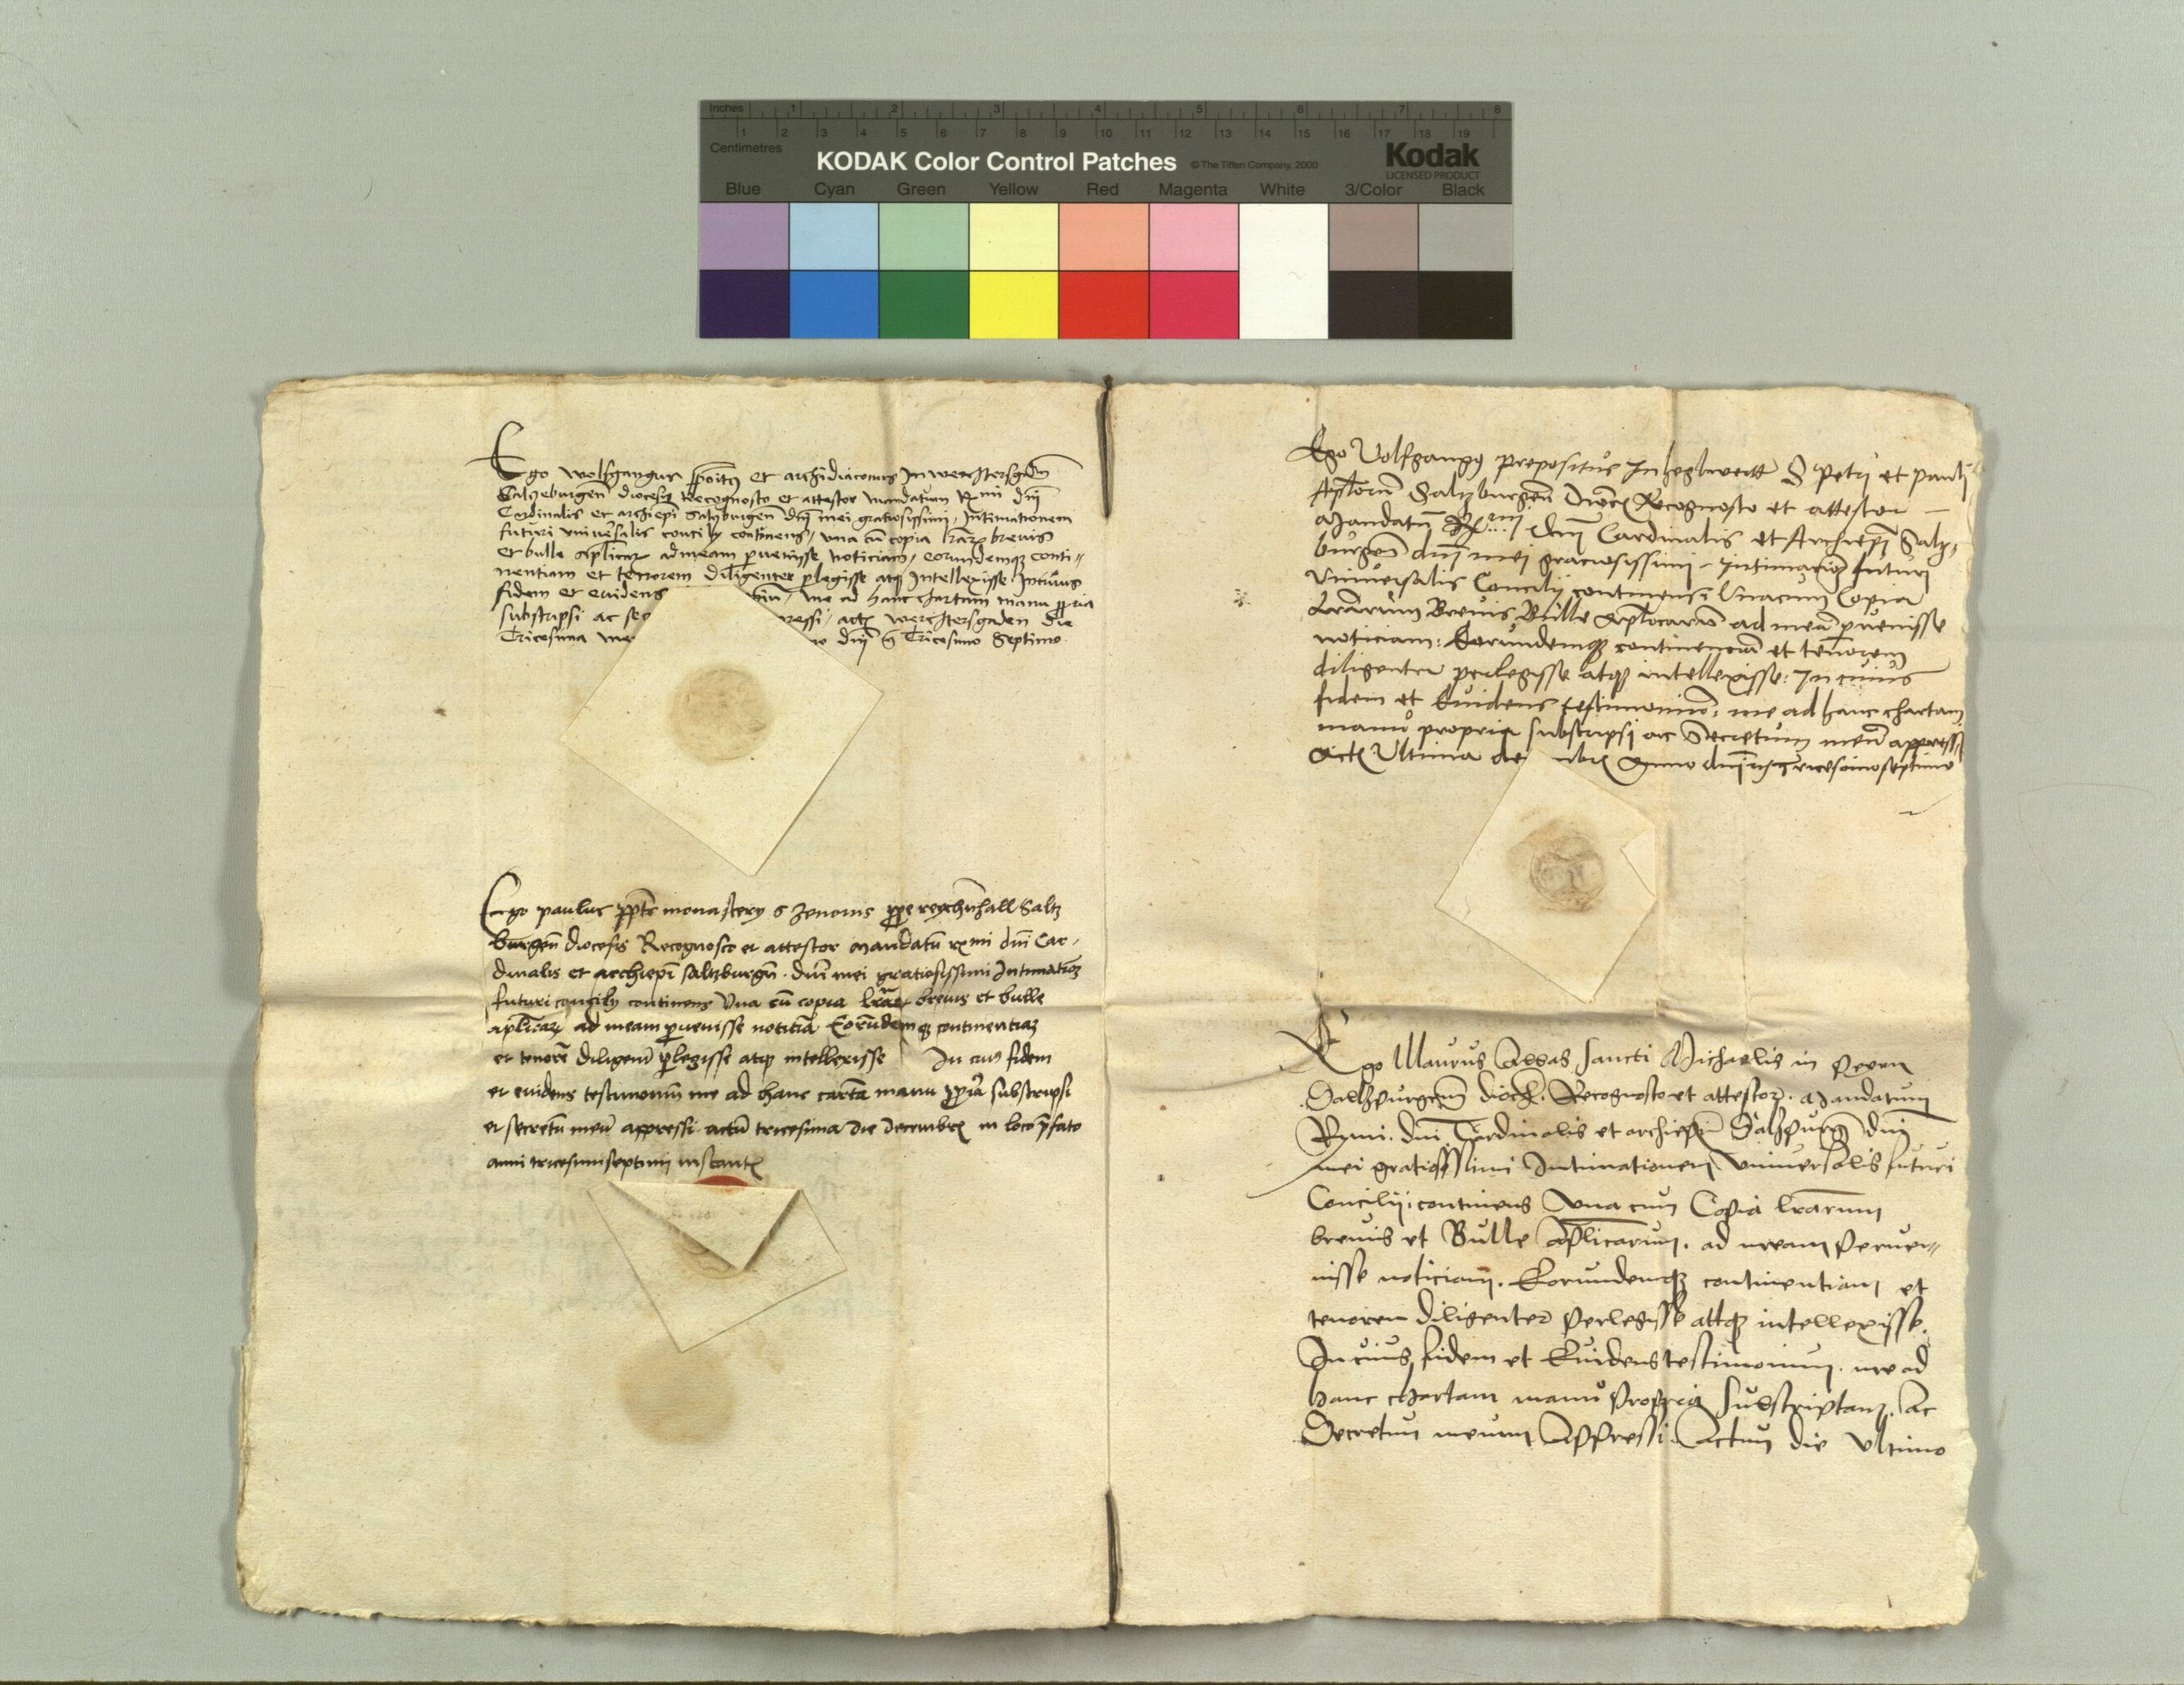 Inches 1 2 3 4 5 6 7 8
1 2 3 4 5 6 7 8 9 10 11 12 13 14 15 16 17 18 19
Centimetres
KODAK Color Control Patches © The Tiffen Company, 2000 Kodak
LICENSED PRODUCT
Blue Cyan Green Yellow Red Magenta White 3/Color Black
Ego wolfgangus et archidiaconus In werchtersgadn̄
Saltzeburgen̄ diocesis Recognosco et attestor mandatum Rmi dn̄i
Cardinalis et archiepi Saltzburgen̄ dn̄i mei gratiosissimi, Intimationem
futuri universalis concilij continens, una cū copia lr̄arū brevis
et bulle ap̄licarū ad meam pervenisse noticiam, eorundemq̨ conti-
nentiam et tenorem diligenter perlegisse atq̨ Intellexisse In cuius
fidem et evidens me ad hanc chartam manu ꝓpria
substripsi ac sec pressi, actū werchtersgaden die
Tricesima dn̄i Tricesimo Septimo
Ego paulus monastery s zenonis ꝓpe reychn̄hall Saltz
burgen̄ diocesis Recognosco et attestor mandatū rxmi dn̄i Car-
dinalis et archiepī saltzburgn̄. dn̄i mei gratiosissimi Intimationē
futuri concily continens Una cū copia lr̄ar̄ brevis et bulle
aplicarū ad meam pervenisse noticiā Eorūdemq̨ continentiam
et tenorē diligent̄ perlegisse atq̨ intellexisse In cuius fidem
et evidens testimoniū me ad hanc cartā manu ꝓpria substripsi
et secretū meū appressi actū tricesima die decembris in loco p̄fato
anni tricesimiseptimi instantis
Ego Volfgangus prepositus In S Petri et pauli
Ap̄lorū Saltzburgen̄ Dioc̄ Recognosco et attestor
Mandatū R dn̄i Cardinalis et Archiepī Saltz-
burgen̄ dn̄i mei graciosissimi Intimationē futuri
Universalis Concilij continens: Unacum Copia
Lr̄arum Brevis, Bulle Ap̄licarū ad meā pervenisse
noticiam: Eorundemq̨ continenciā et tenorem
diligenter perlegisse atq̨ intellexisse: In cuius
fidem et Evidens testimoniū: me ad hanc chartam
manu propria substripsi ac Secretum meū appressi
Actū Ultima de mbris Anno dn̄i Tricesimoseptimo
Ego Maurus Abbas sancti Michaelis in Peurn
Saltzpurgen̄ dioc̄. Recognosco et attestor. Mandatum
Rxmi. dn̄i Cardinalis et archiepī Saltzpurgn̄ dn̄i
mei gratiosissimi Intimationem universalis futuri
Concilij: continens Una cum Copia lr̄arum
brevis et Bulle ap̄licarum. ad meam Perve-
nisse noticiam. Eorundemq̨ continentiam et
tenorem diligenter Perlegisse attq̨ intellexisse.
In cuius fidem et Evidens testimonium. me ad
hanc chartam manu Propria substriptam. Ac
Secretum meum Appressi. Actum die Ultimo